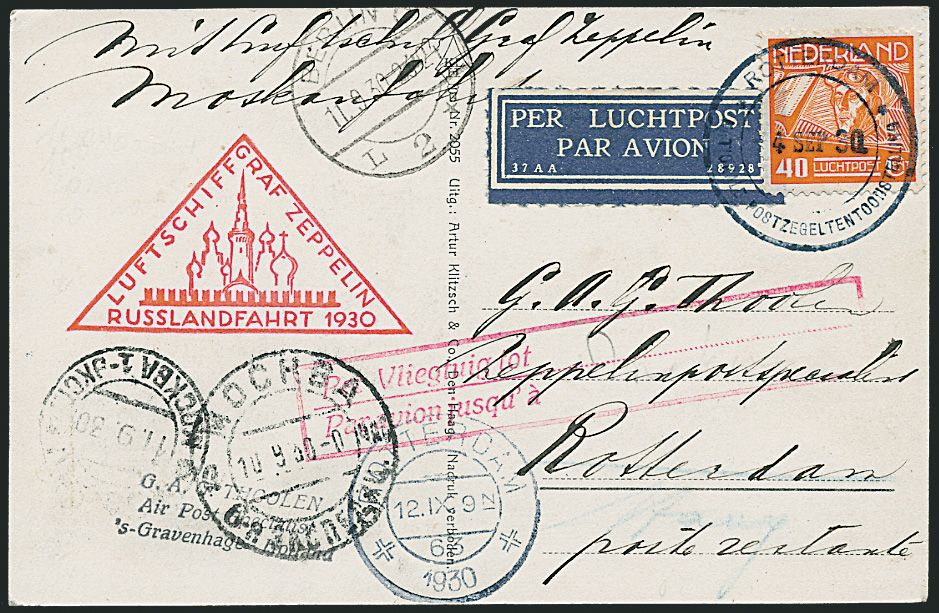 Mit Luftschiff Graf Zeppelin
Moskau
BERLIN
11.9.30.
L 2
PER LUCHTPOST
PAR AVION
37 AA.
28928
NEDERLAND
40 LUCHTPOST
ROTTERDAM
4 SEP 30
POSTZEGELTENTOONSTELLING
LUFTSCHIFF GRAF ZEPPELIN
RUSSLANDFAHRT 1930
Nr. 2055 Uitg.: Artur Klitzsch & Co., Den Haag. Nadruk verboden
G. A. G. Thoolen
Zeppelinpostspecialist
Rotterdam
poste restante
Vliegtuig tot
Par avion jusqu' à
МОСКВА
10 9 30
MOCKBA
11.9 30
G. A. G. THOOLEN
Air Post Specialist
's-Gravenhage Holland
ROTTERDAM
12.IX 9 N
1930